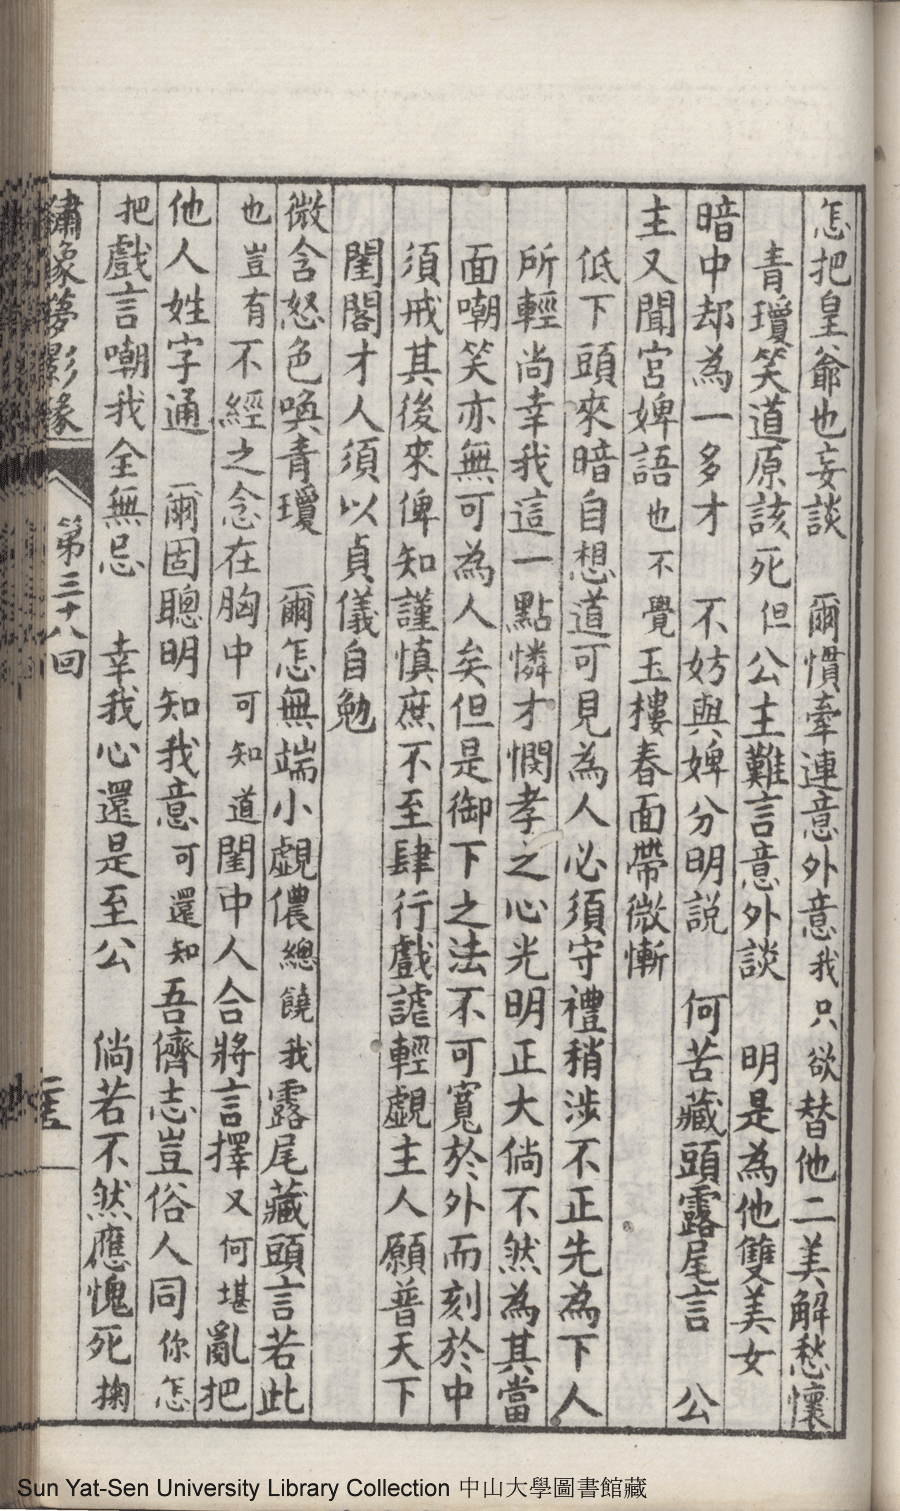 怎把皇爺也妄談　爾慣牽連意外意我只欲替他二美解愁懷
青瓊笑道原該死但公主難言意外談　明是為他雙美女
暗中却為一多才　不妨與婢分明説　何苦藏頭露尾言　公
主又聞宮婢語也不覺玉樓春面帶微慚
低下頭來暗自想道可見為人必須守禮稍涉不正先為下人
所輕尚幸我這一點憐才憫孝之心光明正大倘不然為其當
面嘲笑亦無可為人矣但是御下之法不可寬於外而刻於中
須戒其後來俾知謹慎庶不至肆行戲謔輕覷主人願普天下
閨閣才人須以貞儀自勉
微含怒色喚青瓊　爾怎無端小覷儂總饒我露尾藏頭言若此
也豈有不經之念在胸中可知道閨中人合將言擇又何堪亂把
他人姓字通　爾固聰明知我意可還知吾儕志豈俗人同你怎
把戲言嘲我全無忌　幸我心還是至公　倘若不然應愧死掬
繡像夢影緣　第三十八回
Sun Yat-Sen University Library Collection 中山大學圖書館藏